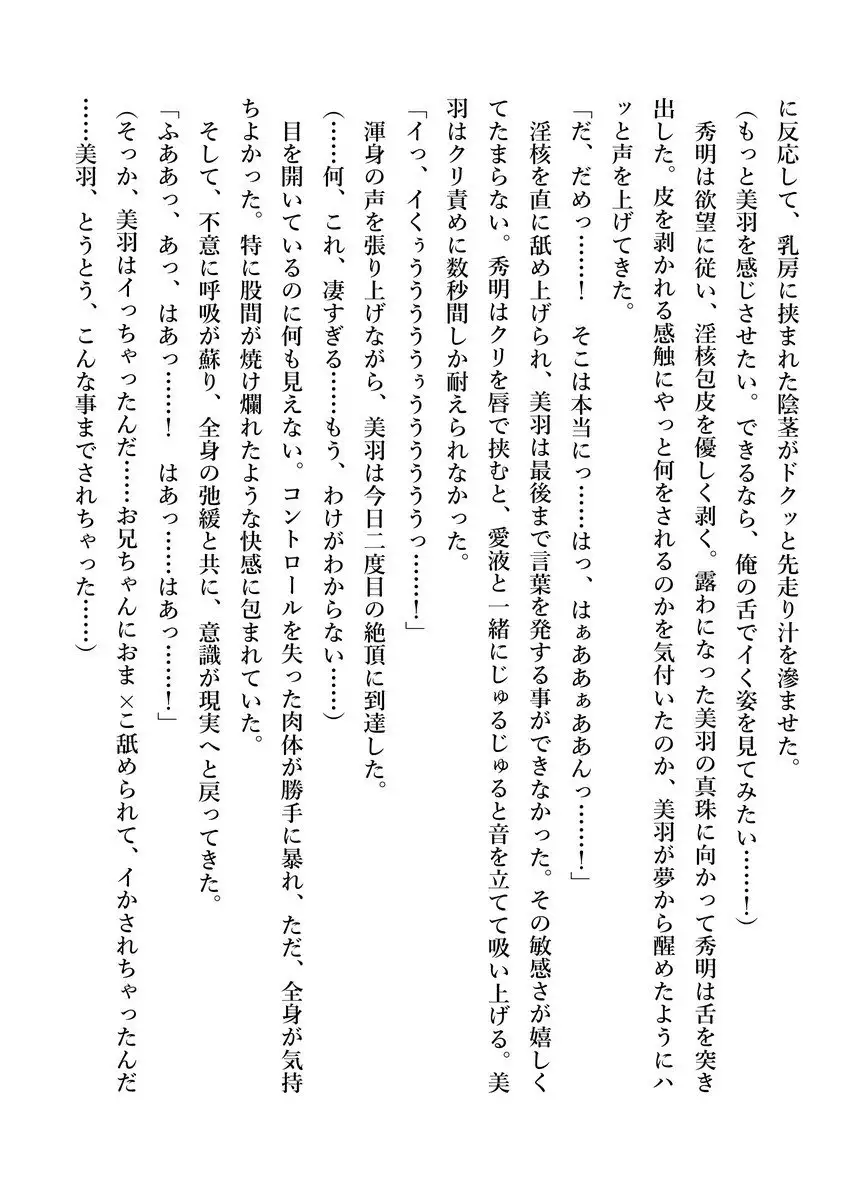 に反応して、乳房に挟まれた陰茎がドクッと先走り汁を滲ませた。
(もっと美羽を感じさせたい。できるなら、俺の舌でイく姿を見てみたい……!)
秀明は欲望に従い、淫核包皮を優しく剥く。露わになった美羽の真珠に向かって秀明は舌を突き
出した。皮を剥かれる感触にやっと何をされるのかを気付いたのか、美羽が夢から醒めたようにハ
ッと声を上げてきた。
「だ、だめっ……! そこは本当にっ……はっ、はぁああぁああんっ……!」
淫核を直に舐め上げられ、美羽は最後まで言葉を発する事ができなかった。その敏感さが嬉しく
てたまらない。秀明はクリを唇で挟むと、愛液と一緒にじゅるじゅると音を立てて吸い上げる。美
羽はクリ責めに数秒間しか耐えられなかった。
「イっ、イくぅうううううぅうううううううっ……!」
渾身の声を張り上げながら、美羽は今日二度目の絶頂に到達した。
(……何、これ、凄すぎる……もう、わけがわからない……)
目を開いているのに何も見えない。コントロールを失った肉体が勝手に暴れ、ただ、全身が気持
ちよかった。特に股間が焼け爛れたような快感に包まれていた。
そして、不意に呼吸が蘇り、全身の弛緩と共に、意識が現実へと戻ってきた。
「ふああっ、あっ、はあっ……! はあっ……はあっ……!」
(そっか、美羽はイっちゃったんだ……お兄ちゃんにおま×こ舐められて、イかされちゃったんだ
……美羽、とうとう、こんな事までされちゃった……)